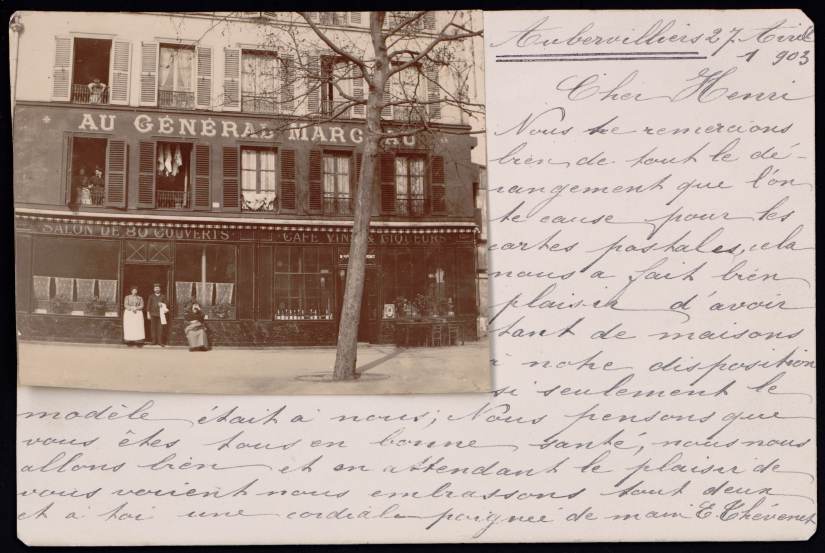 AU GÉNÉRAL MARCEAU
SALON DE 80 COUVERTS
CAFÉ VINS & LIQUEURS
Aubervilliers 27 Avril
1903
Cher Henri
Nous te remercions
bien de tout le dé-
rangement que l'on
te cause pour les
cartes postales, cela
nous a fait bien
plaisir d'avoir
tant de maisons
à notre disposition
si seulement le
modèle était à nous; Nous pensons que
vous êtes tous en bonne santé, nous nous
allons bien et en attendant le plaisir de
vous voirient nous embrassons tout deux
et à toi une cordiale poignée de main E. Thévenet